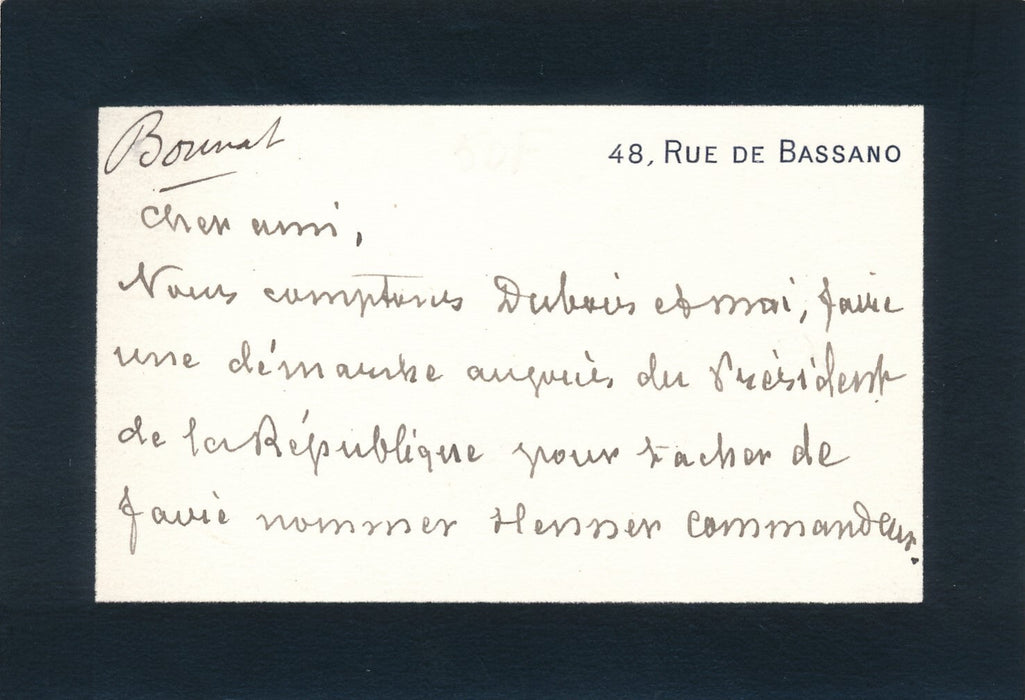 Bonnat
48, RUE DE BASSANO
Cher ami,
Nous comptons Dubois et moi, faire
une démarche auprès du Président
de la République pour tacher de
faire nommer Henner commandeur.